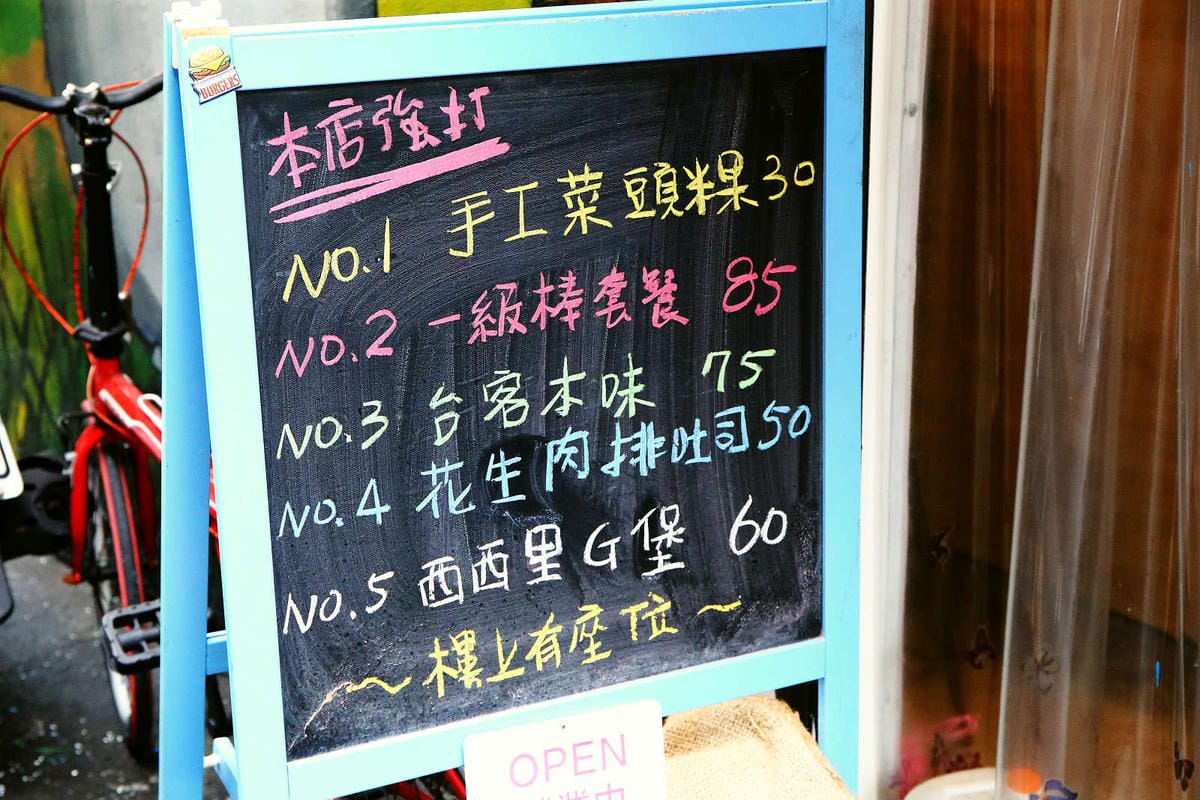 BURGERS
本店強打
NO.1 手工菜頭粿30
NO.2 一級棒套餐 85
NO.3 台客本味 75
NO.4 花生肉排吐司50
NO.5 西西里G堡 60
～樓上有座位～
OPEN